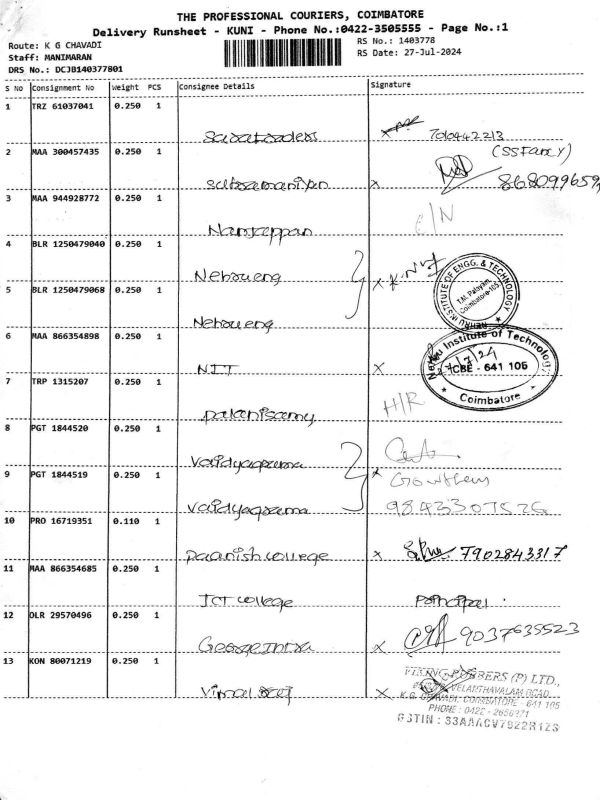 THE PROFESSIONAL COURIERS, COIMBATORE
Delivery Runsheet - KUNI - Phone No.:0422-3505555 - Page No.:1
Route: K G CHAVADI
RS No.: 1403778
Staff: MANIMARAN
RS Date: 27-Jul-2024
DRS No.: DCJB140377801
S No Consignment No Weight PCS Consignee Details Signature
1 TRZ 61037041 0.250 1
2 MAA 300457435 0.250 1
(SS Fancy)
3 MAA 944928772 0.250 1
C/N
Nanjappan
4 BLR 1250479040 0.250 1
Nehru eng x
NEHRU INSTITUTE OF ENGG. & TECHNOLOGY
T.M. Palayam,
Coimbatore-105
5 BLR 1250479068 0.250 1
Nehru eng
6 MAA 866354898 0.250 1
NIT x
Nehru Institute of Technology
27/7/24
CBE - 641 105
Coimbatore
7 TRP 1315207 0.250 1
H/R
Palanisamy
8 PGT 1844520 0.250 1
Vaidyagrama
9 PGT 1844519 0.250 1
x Gowtham
Vaidyagrama
10 PRO 16719351 0.110 1
college x 7902843317
11 MAA 866354685 0.250 1
JCT college Principal
12 OLR 29570496 0.250 1
x 9037635523
13 KON 80071219 0.250 1
x
VIKING RUBBERS (P) LTD.,
VELANTHAVALAM ROAD,
K.G. CHAVADI, COIMBATORE - 641 105
PHONE : 0422 - 2656371
GSTIN : 33AAACV7922R1ZS